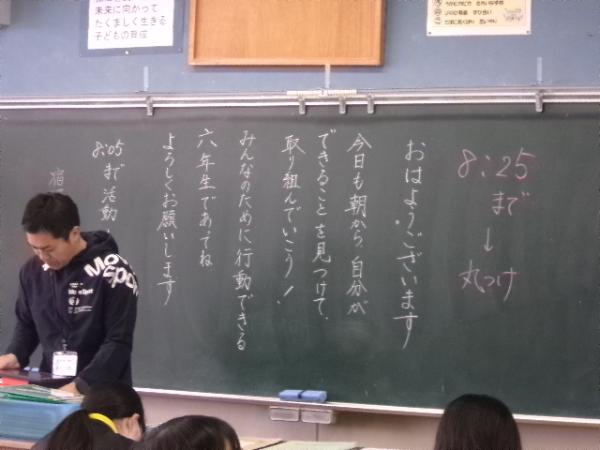 未来に向かって
たくましく生きる
子どもの育成
8:25
まで
↓
丸つけ
おはようございます
今日も朝から自分が
できることを見つけて、
取り組んでいこう!
みんなのために行動できる
六年生であってね
よろしくお願いします
8:05まで活動
宿